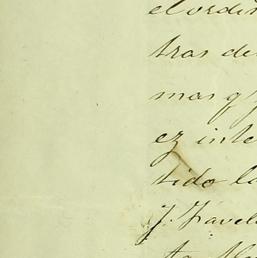 el orden
tras de
mas q
ez inte
tido la
J. Favel